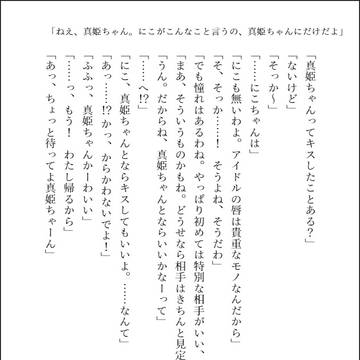 「ねえ、真姫ちゃん。にこがこんなこと言うの、真姫ちゃんにだけだよ」
「真姫ちゃんってキスしたことある?」
「ないけど」
「そっか〜」
「……にこちゃんは」
「にこも無いわよ。アイドルの唇は貴重なモノなんだから」
「そ、そっか……! そうよね、そうだわ」
「でも憧れはあるわね。やっぱり初めては特別な相手がいい、
「まあ、そういうものかもね。どうせなら相手はきちんと見定
「うん。だからね、真姫ちゃんとならいいかなーって」
「……へ!?」
「にこ、真姫ちゃんとならキスしてもいいよ。……なんて」
「あっ……!? かっ、からかわないでよ!」
「ふふっ、真姫ちゃんかーわいい」
「……っ、もう! わたし帰るから」
「あっ、ちょっと待ってよ真姫ちゃーん」